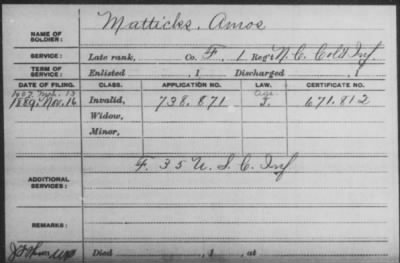 NAME OF SOLDIER: Matticks, Amos
SERVICE: Late rank, Co. F, 1 Reg't N.C. Col'd Inf.
TERM OF SERVICE: Enlisted , 1 Discharged , 1
DATE OF FILING. CLASS. APPLICATION NO. LAW. CERTIFICATE NO.
1889, Nov. 16 Invalid, 738.871 J. 671.812
Widow,
Minor,
ADDITIONAL SERVICES: F. 35 U.S.C. Inf
REMARKS:
Died , 1 , at